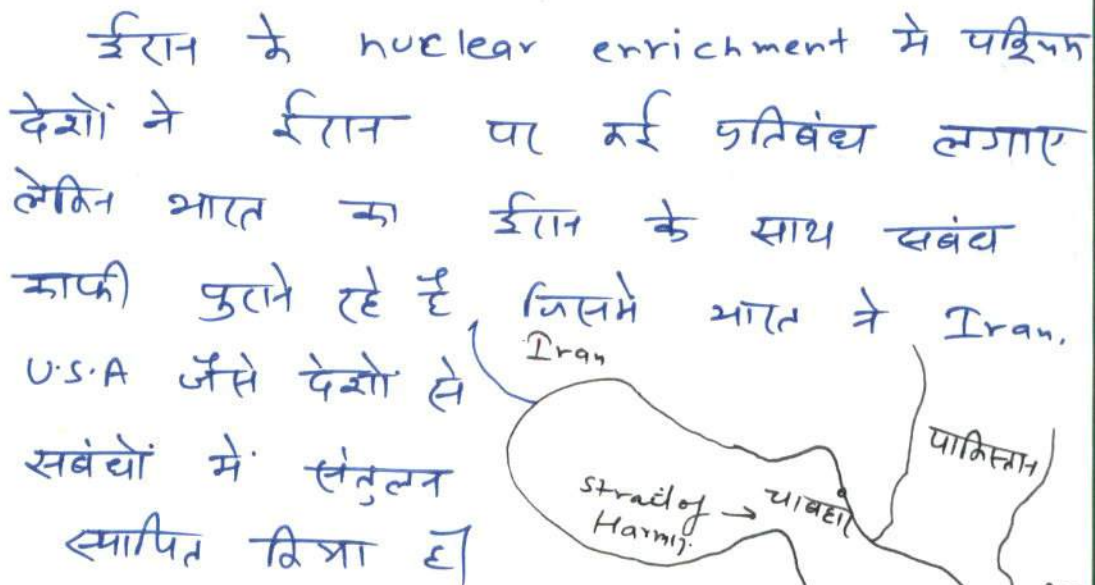 ईरान के nuclear enrichment मे पश्चिम
देशों ने ईरान पर कई प्रतिबंध लगाए
लेकिन भारत का ईरान के साथ सबंध
काफी पुराने रहे है जिसमे भारत ने Iran.
U.S.A जैसे देशो से
सबंधों में संतुलन
स्थापित किया है।
Iran
पाकिस्तान
Strait of → चाबहार
Harmuj.